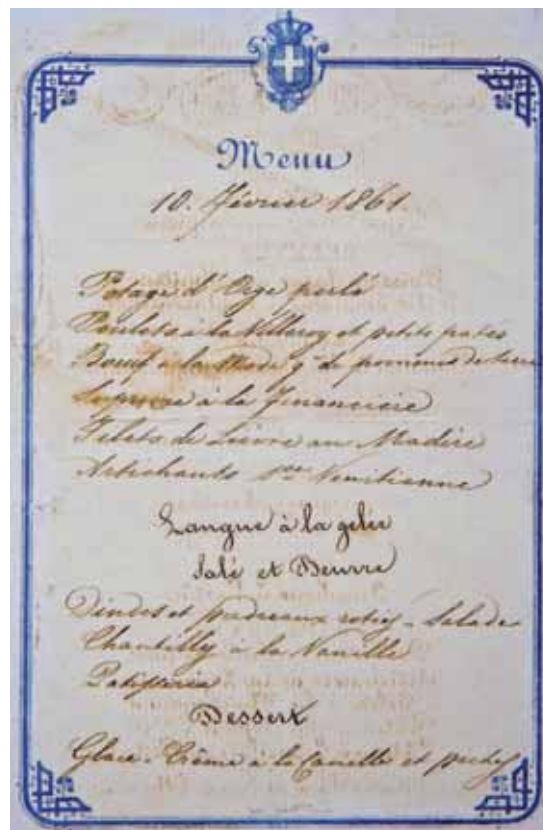 Menu
10. Février 1861.
Potage d'Orge perlé
Poulets à la Villeroy et petits patés
Boeuf à la Mode g.i de pommes de terre
Supreme à la Financière
Filets de Lievre au Madère
Artichauts Venitienne
Langue à la gelée
Salé et Beurre
Dindes et perdreaux rotis - Salade
Chantilly à la Vanille
Patisserie
Dessert
Glace. Crème à la et